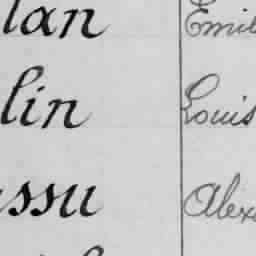 lan Emil
lin Louis
ssu Alex